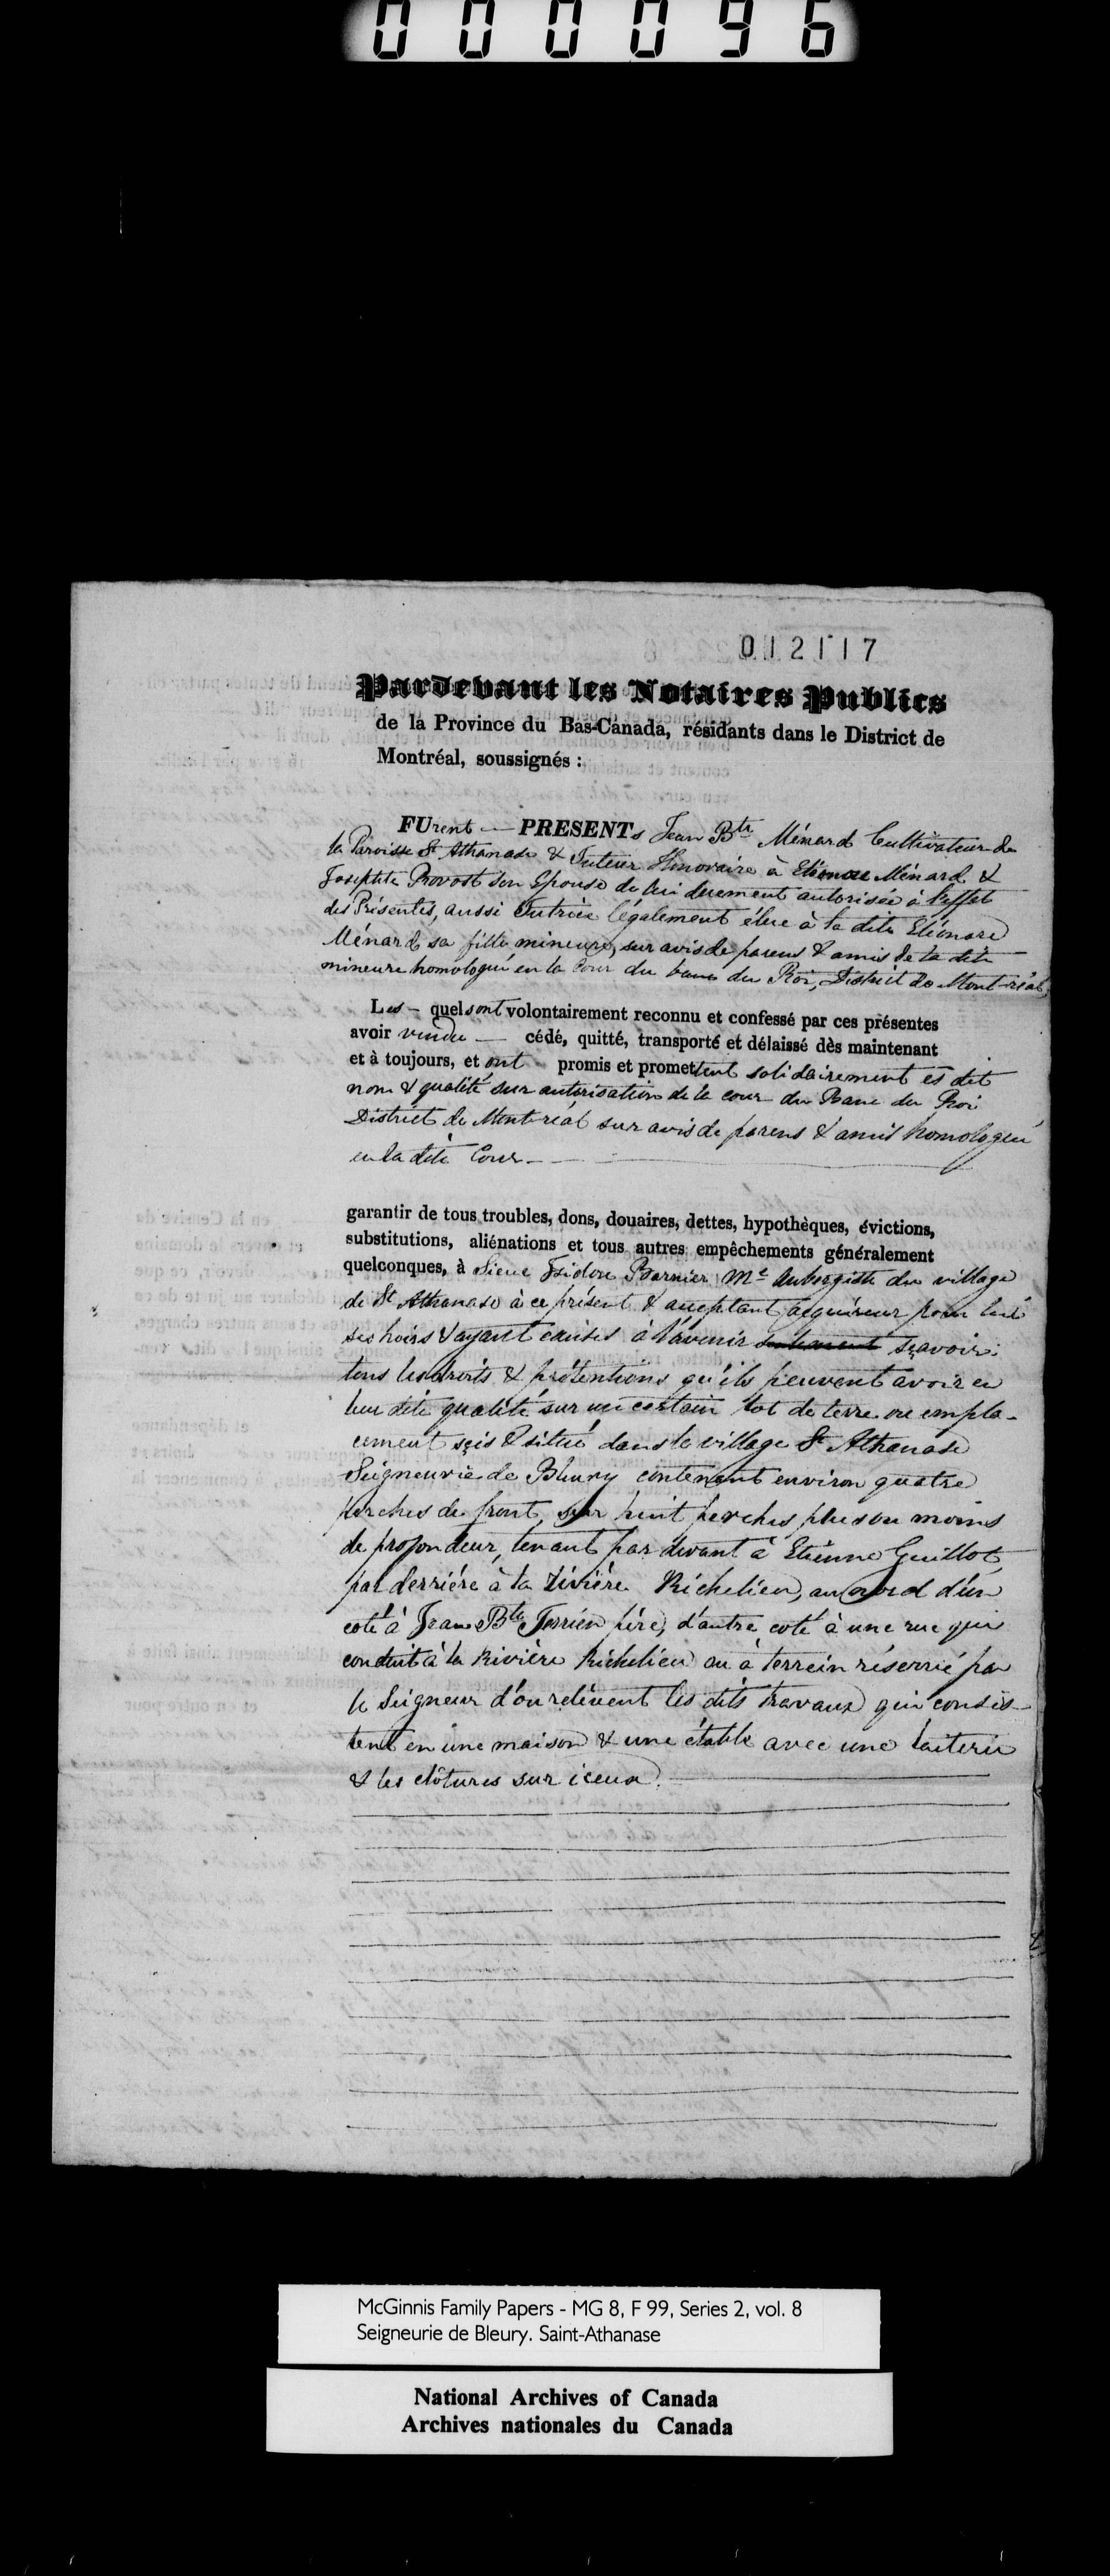 000096
012117
Pardevant les Notaires Publics
de la Province du Bas-Canada, résidants dans le District de
Montréal, soussignés :
FUrent — PRESENTs Jean Bte Ménard Cultivateur de
la Paroisse St Athanase & Tuteur Honoraire à Eléonore Ménard &
Josephte Provost son Epouse de lui duement autorisée à l'effet
des Présentes, aussi Tutrice légalement élue à la dite Eléonore
Ménard sa fille mineure, sur avis de parens & amis de la dite
mineure homologué en la Cour du banc du Roi, District de Mont-réal,
Les – quels ont volontairement reconnu et confessé par ces présentes
avoir vendu — cédé, quitté, transporté et délaissé dès maintenant
et à toujours, et ont promis et promettent solidairement es dit
nom & qualité sur autorisation de la cour du Banc du Roi
District de Mont-réal sur avis de parens & amis homologué
en la dite Cour —
garantir de tous troubles, dons, douaires, dettes, hypothèques, évictions,
substitutions, aliénations et tous autres empêchements généralement
quelconques, à Sieur Isidore Barnier Me Aubergiste du village
de St Athanase à ce présent & acceptant acquéreur pour lui
ses hoirs & ayant causes à l'avenir sçavoir:
tous les droits & prétentions qu'ils peuvent avoir en
leur dite qualité sur un certain lot de terre ou empla-
cement seis & situé dans le village St Athanase
Seigneurie de Bleury contenant environ quatre
perches de front, sur huit perches plus ou moins
de profondeur, tenant par devant à Etienne Guillot,
par derrière à la Rivière Richelieu, au nord d'un
coté à Jean Bte Terrien père, d'autre coté à une rue qui
conduit à la Rivière Richelieu ou à terrein réservé par
le Seigneur d'où relèvent les dits travaux qui consis-
tent en une maison & une étable avec une laiterie
& les clôtures sur iceux.
McGinnis Family Papers - MG 8, F 99, Series 2, vol. 8
Seigneurie de Bleury. Saint-Athanase
National Archives of Canada
Archives nationales du Canada